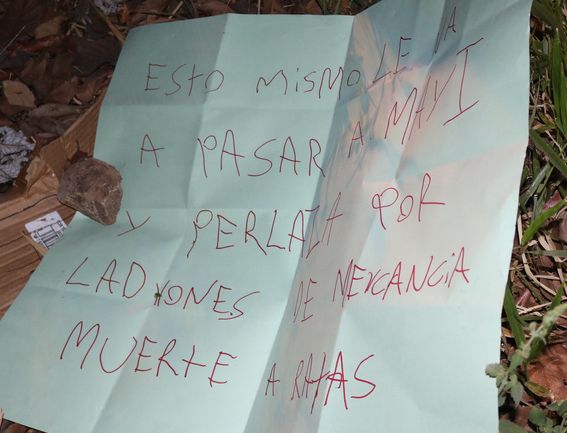 ESTO MISMO LE VA
A PASAR A MAYI
Y PERLAZA POR
LADRONES DE MERCANCIA
MUERTE A RATAS